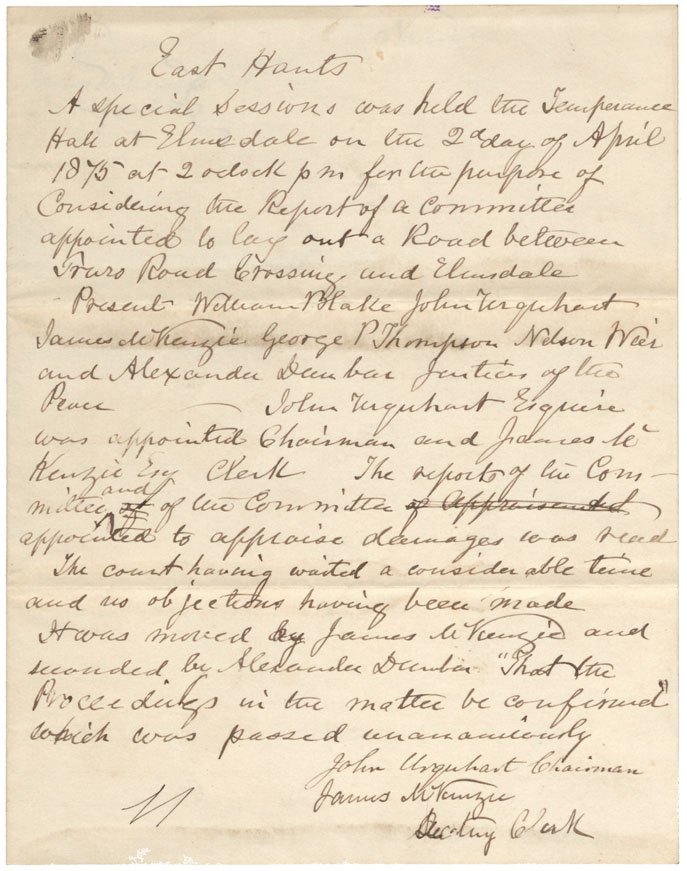 East Hants
A special Sessions was held the Temperance
Hall at Elmsdale on the 2d day of April
1875 at 2 oclock p m for the purpose of
Considering the Report of a Committee
appointed to lay out a Road between
Truro Road Crossing and Elmsdale
Present William Blake John Urquhart
James McKenzie George P Thompson Nelson Weir
and Alexander Dunbar Justices of the
Peace — John Urquhart Esquire
was appointed Chairman and James Mc
Kenzie Esq Clerk The report of the Com-
mittee and of the Committee of Appraisement
appointed to appraise damages was read
The court having waited a considerable time
and no objections having been made
It was moved by James McKenzie and
seconded by Alexander Dunbar "That the
Proceedings in the matter be confirmed"
which was passed unanamously
John Urquhart Chairman
James McKenzie
Clerk